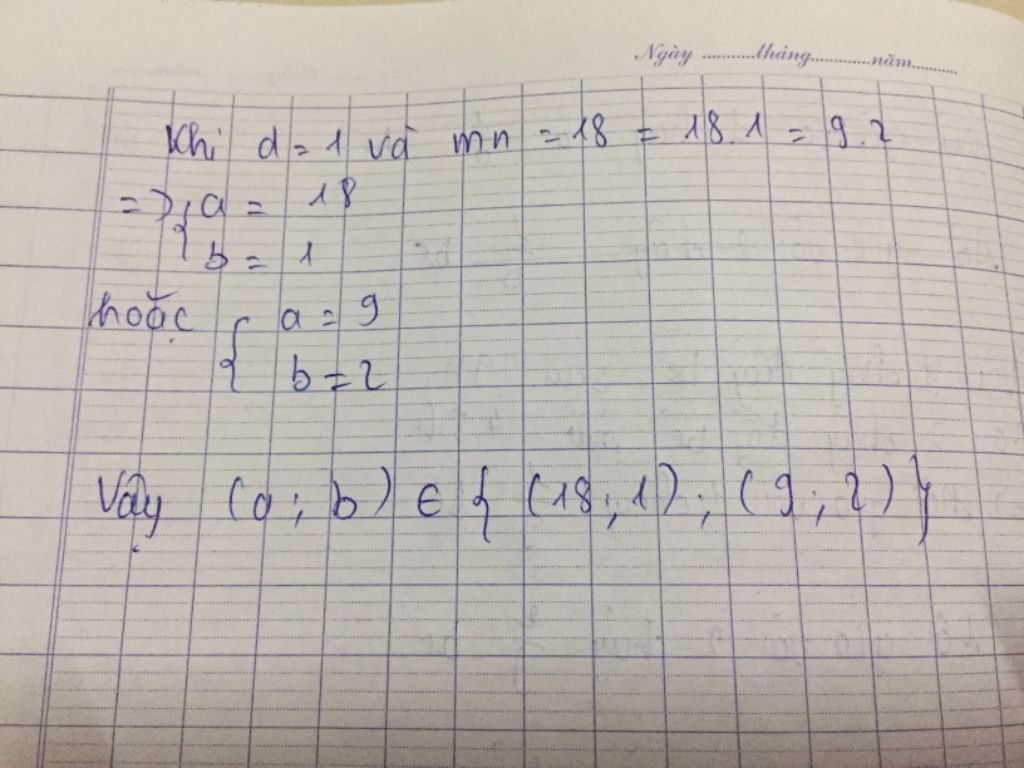 Ngày ...........tháng............năm..........
Khi d = 1 và mn = 18 = 18.1 = 9.2
=> { a = 18
b = 1
hoặc { a = 9
b = 2
Vậy (a ; b) ∈ { (18 ; 1) ; (9 ; 2) }